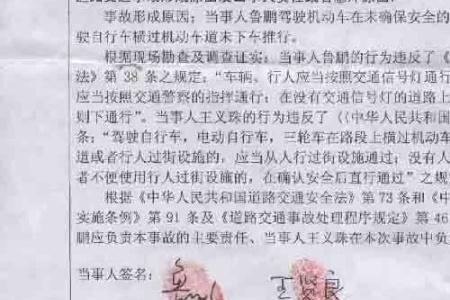 事故形成原因：当事人鲁鹏驾驶机动车在未确保安全的
驶自行车横过机动车道未下车推行。
根据现场勘查及调查证实：当事人鲁鹏的行为违反了《
法》第 38 条之规定：“车辆、行人应当按照交通信号灯通行
应当按照交通警察的指挥通行；在没有交通信号灯的道路上
则下通行”。当事人王义珠的行为违反了《《中华人民共和国
条：“驾驶自行车，电动自行车，三轮车在路段上横过机动车
道或者行人过街设施的，应当从人行过街设施通过；没有人
者不便使用行人过街设施的，在确认安全后直行通过”之规
根据《中华人民共和国道路交通安全法》第 73 条和《中
实施条例》第 91 条及《道路交通事故处理程序规定》第 46
鹏应负责本事故的主要责任、当事人王义珠在本次事故中负
当事人签名：